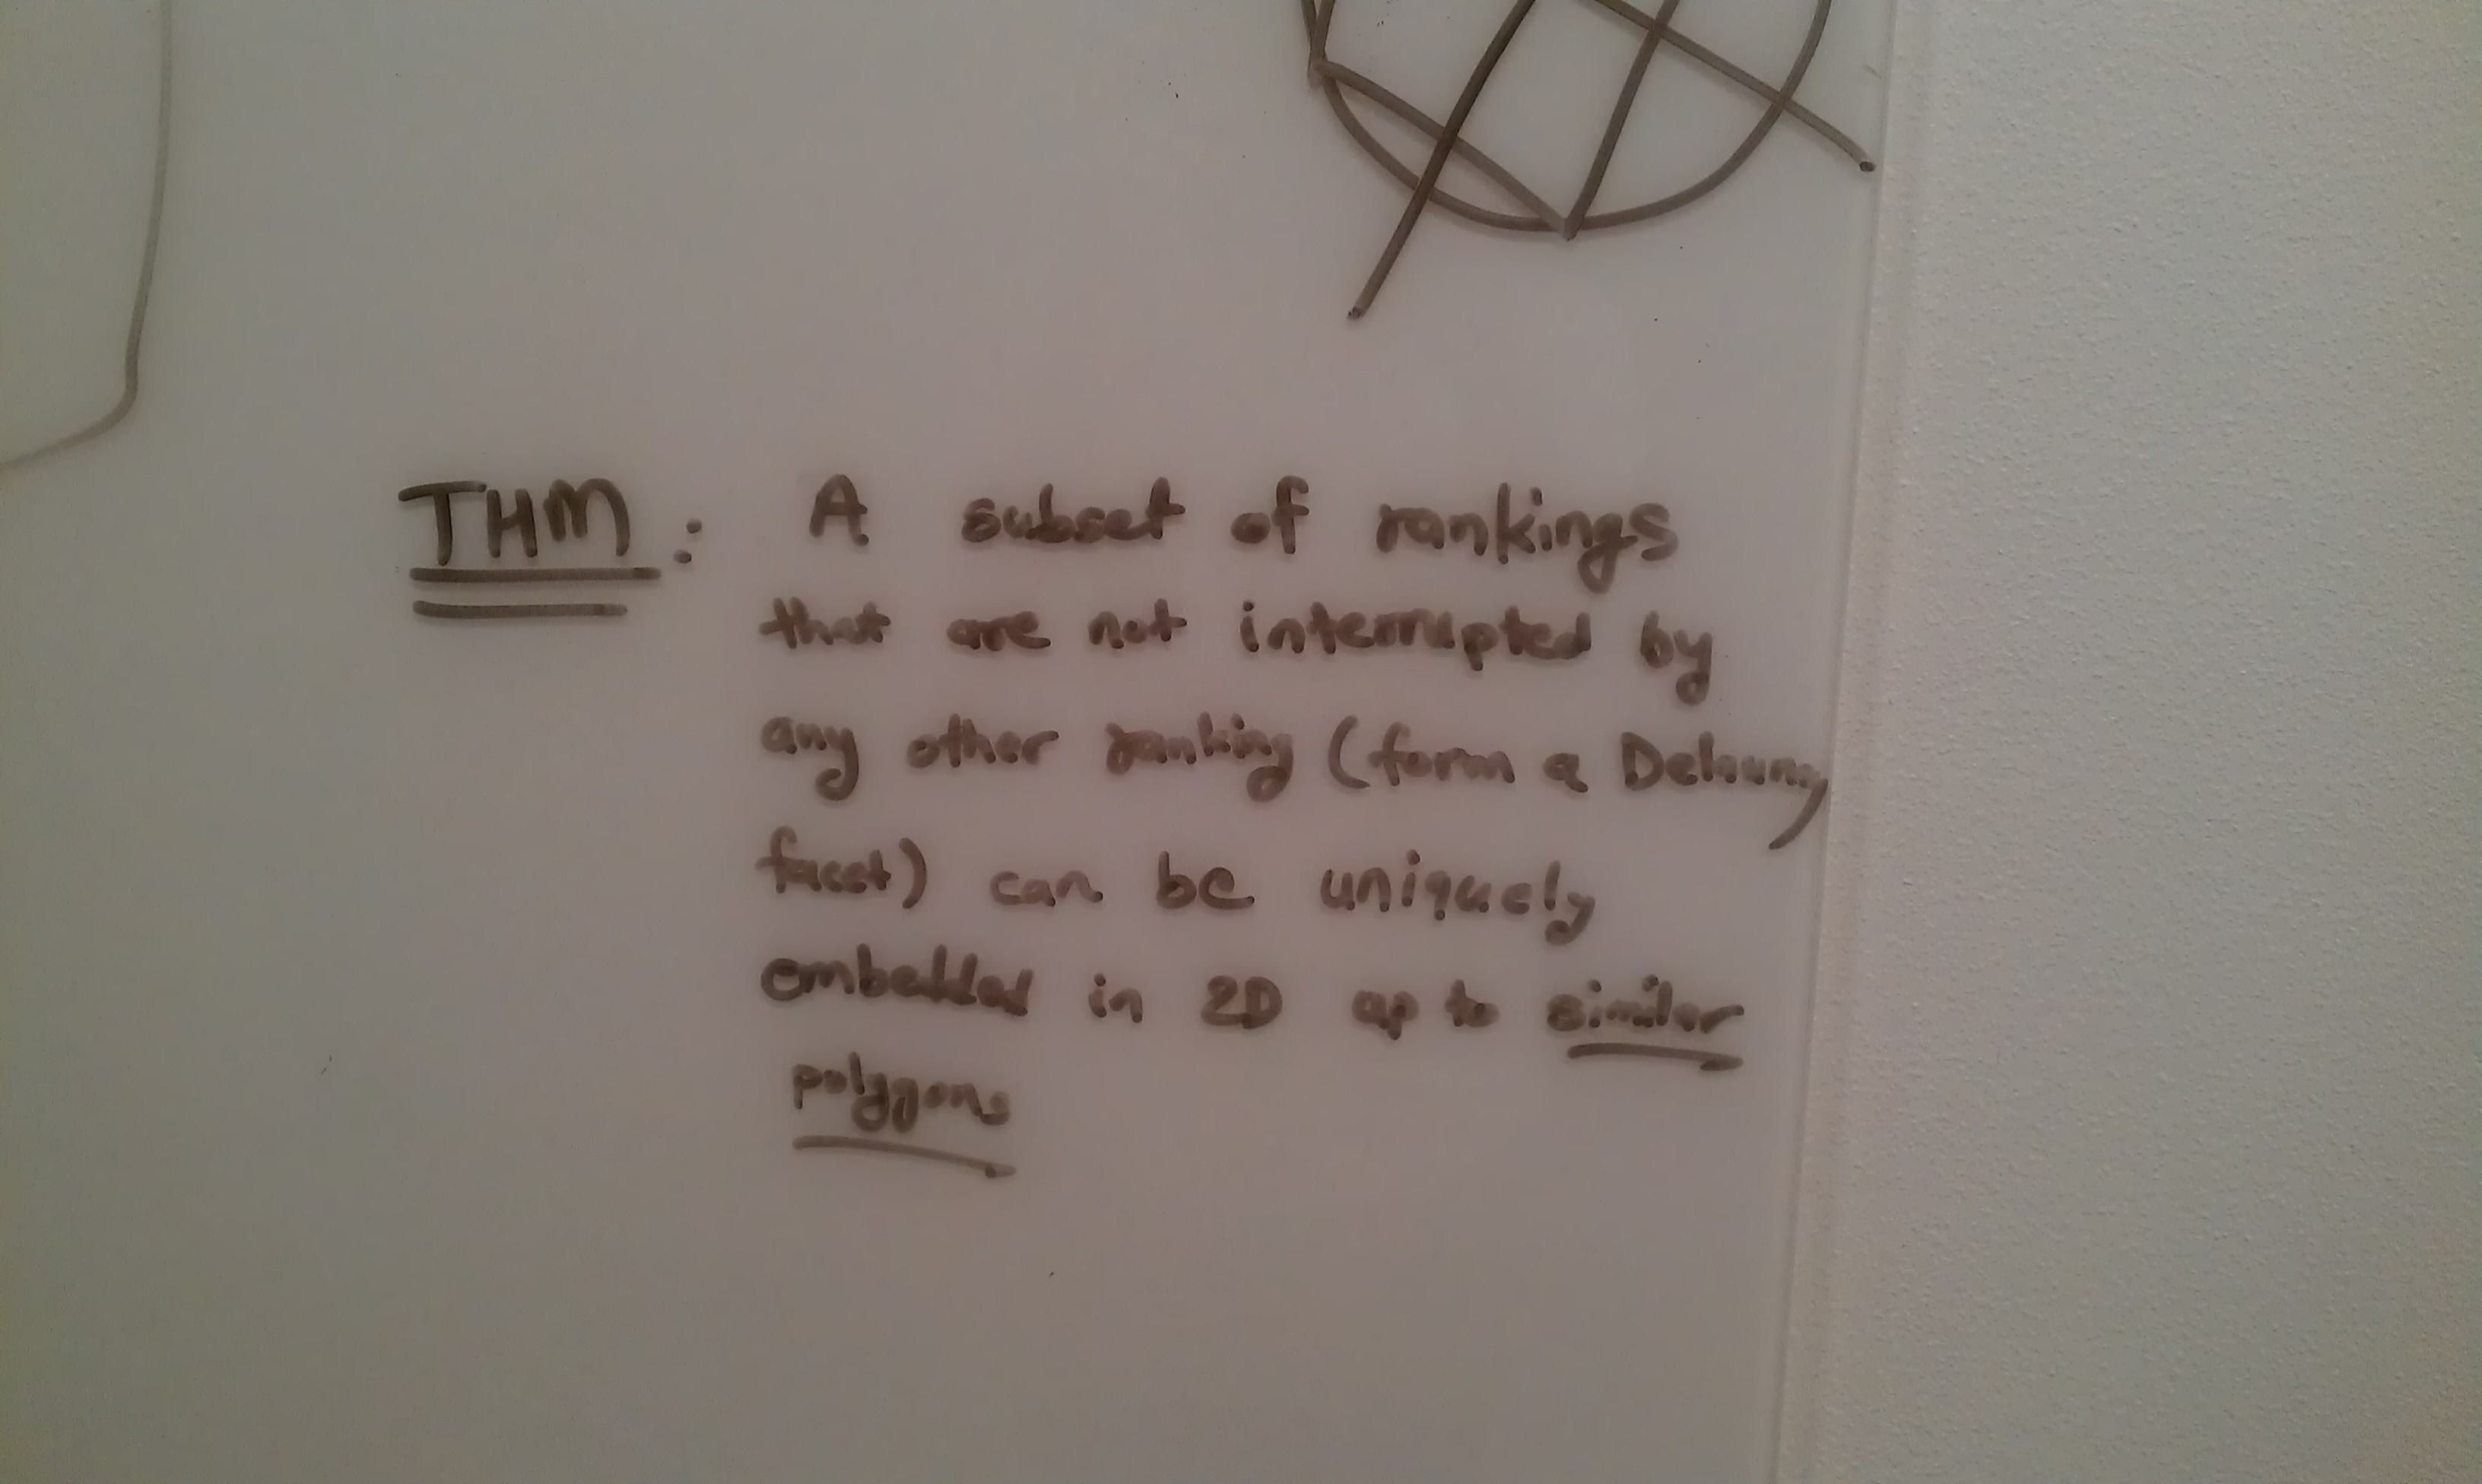 THM: A subset of rankings
that are not interrupted by
any other ranking (form a Delaunay
facet) can be uniquely
embedded in 2D up to similar
polygons